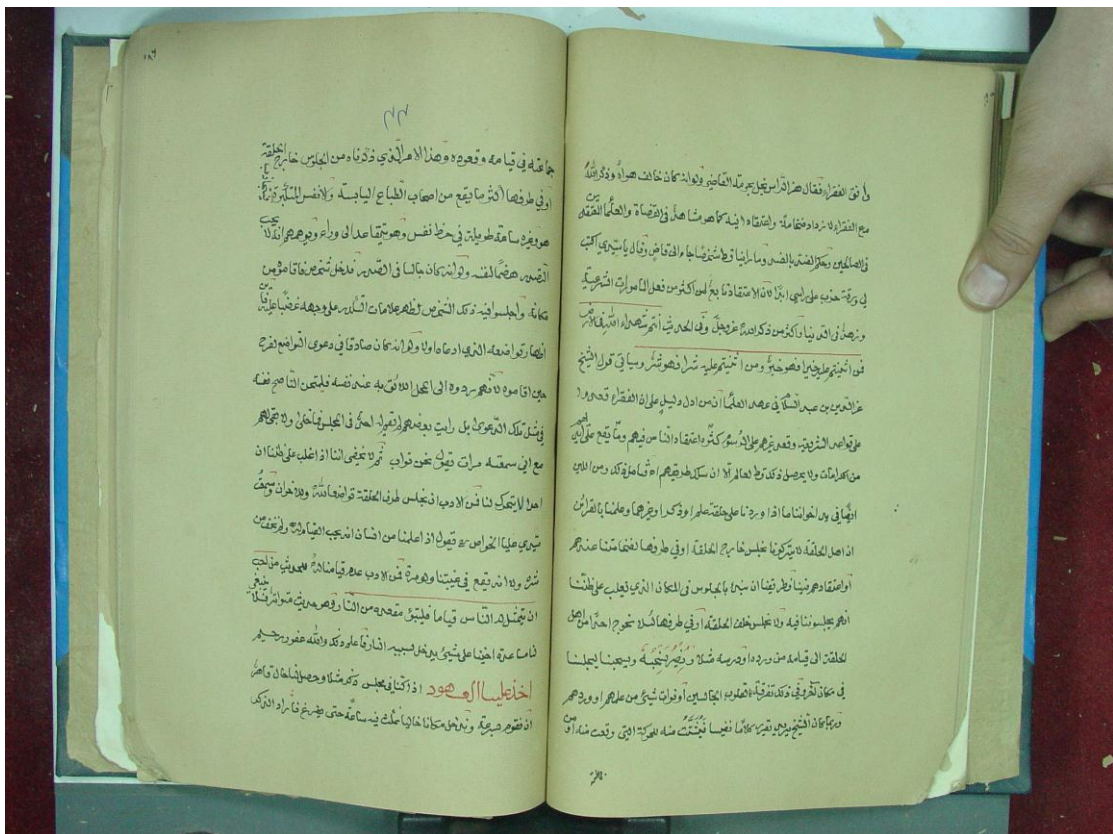 وأنق الفقراء فقال هذا الراس نخل بحرمة القاضي ولو انه كان خالف هواه وذكر الله
مع الفقراء لازداد فخامة واعتقادا فيه كما هو مشاهد في القضاة والعلماء المعتقدين
في الصالحين وبعكس الضد بالضد وما راينا قط شخصا جاء الى قاض وقال يا سيدي اكتب
لي ورقة حرب على راسي ابدا لان الاعتقاد تابع لمن اكثر من فعل المامورات الشرعية
وزهد في الدنيا واكثر من ذكر الله عز وجل وفي الحديث أنتم شهداء الله في الارض
فمن اثنيتم عليه خيرا فهو خير ومن اثنيتم عليه شرا فهو شر وسياتي قول الشيخ
عز الدين بن عبد السلام في عهد العلماء ان من ادل دليل على ان الفقراء قعدوا
على قواعد الشريعة وقعد غيرهم على الرسوم كثرة اعتقاد الناس فيهم وما يقع على ايديهم
من الكرامات ولا يحصل ذلك قط لعالم الا ان سلك طريقهم اه فتامل ذلك ومن الادب
ايضا في يد اخواننا ما اذا وردنا على حلقة علم او ذكر او غيرهما وعلمنا بالقرائن
ان اهل الحلقة لا يتركونا نجلس خارج الحلقة او في طرفها لفخامتنا عندهم
أو اعتقادهم فينا فطريقنا ان نبدأ بالجلوس في المكان الذي يغلب على ظننا
انهم يجلسوننا فيه ولا نجلس خلف الحلقة او في طرفها لئلا نحوج احدا من اهل
الحلقة الى قيامه من ورده او درسه مثلا ويسحبنا ليجلسنا
في مكان آخر وفي ذلك تفرقة لقلوب الجالسين أو فوات شيء من علمهم او وردهم
وربما كان الشيخ يريد تقرير كلاما نفيسا فيتشتت منه للحركة التي وقعت منه او من
جماعته في قيامه وقعوده وهذا الامر الذي ذكرناه من الجلوس خارج الحلقة
أو في طرفها أكثر ما يقع من اصحاب الطباع اليابسة والانفس المتكبرة
هو وغيره ساعة طويلة في حظ نفس وهو يتقاعد الى وراء ويوهم انه لا يحب
التصدير هضما لنفسه ولو انه كان جالسا في الصدر فدخل شخص فاقاموه من
مكانه وأجلسوا فيه ذلك الشخص لظهر علامات التكدر على وجهه غضبا
اظهار تواضعه الذي ادعاه اولا ولو انه كان صادقا في دعوى التواضع لفرح
حين اقاموه لانهم ردوه الى المحل اللائق به عند نفسه فليمتحن الناصح نفسه
في مثل تلك الدعوى بل رايت بعضهم لم يقم له احد في المجلس فما خلى ولا بقى لهم
مع اني سمعته مرات يقول نحن تراب ثم لا يخفى اننا اذا غلب على ظننا ان
احدا لا يتحرك لنا فمن الادب ان نجلس طرف الحلقة تواضعا لله وللاخوان وسمعت
سيدي عليا الخواص يقول اذا علمنا من انسان انه يحب القيام له ولم نخف من
شره ولا انه يقع في غيبتنا ولو مرة فمن الادب عدم قيامنا له لحديث من احب
ان يتمثل له الناس قياما فليتبوأ مقعده من النار وهو حديث متواتر
ساعدة اخينا على شيء يدخل بسببه النار فاعلم ذلك والله غفور رحيم
أخذ علينا العهود اذا كنا في مجلس ذكر مثلا وحصل لنا حال قاهر
ان نقوم بسرعة وندخل مكانا خاليا نمكث فيه ساعة حتى يفرغ فان اراد التكدر